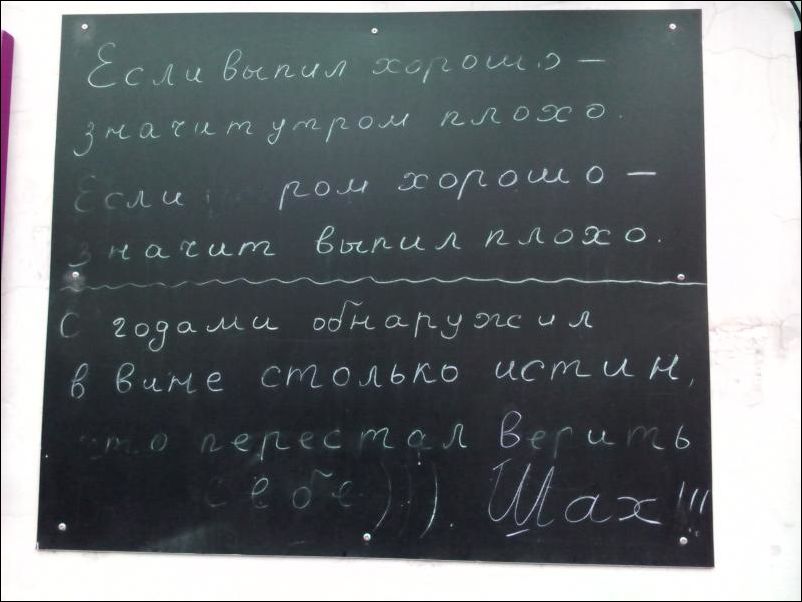 Если выпил хорошо –
значит утром плохо.
Если ром хорошо –
значит выпил плохо.
с годами обнаружил
в вине столько истин,
что перестал верить
себе))). Шах!!!